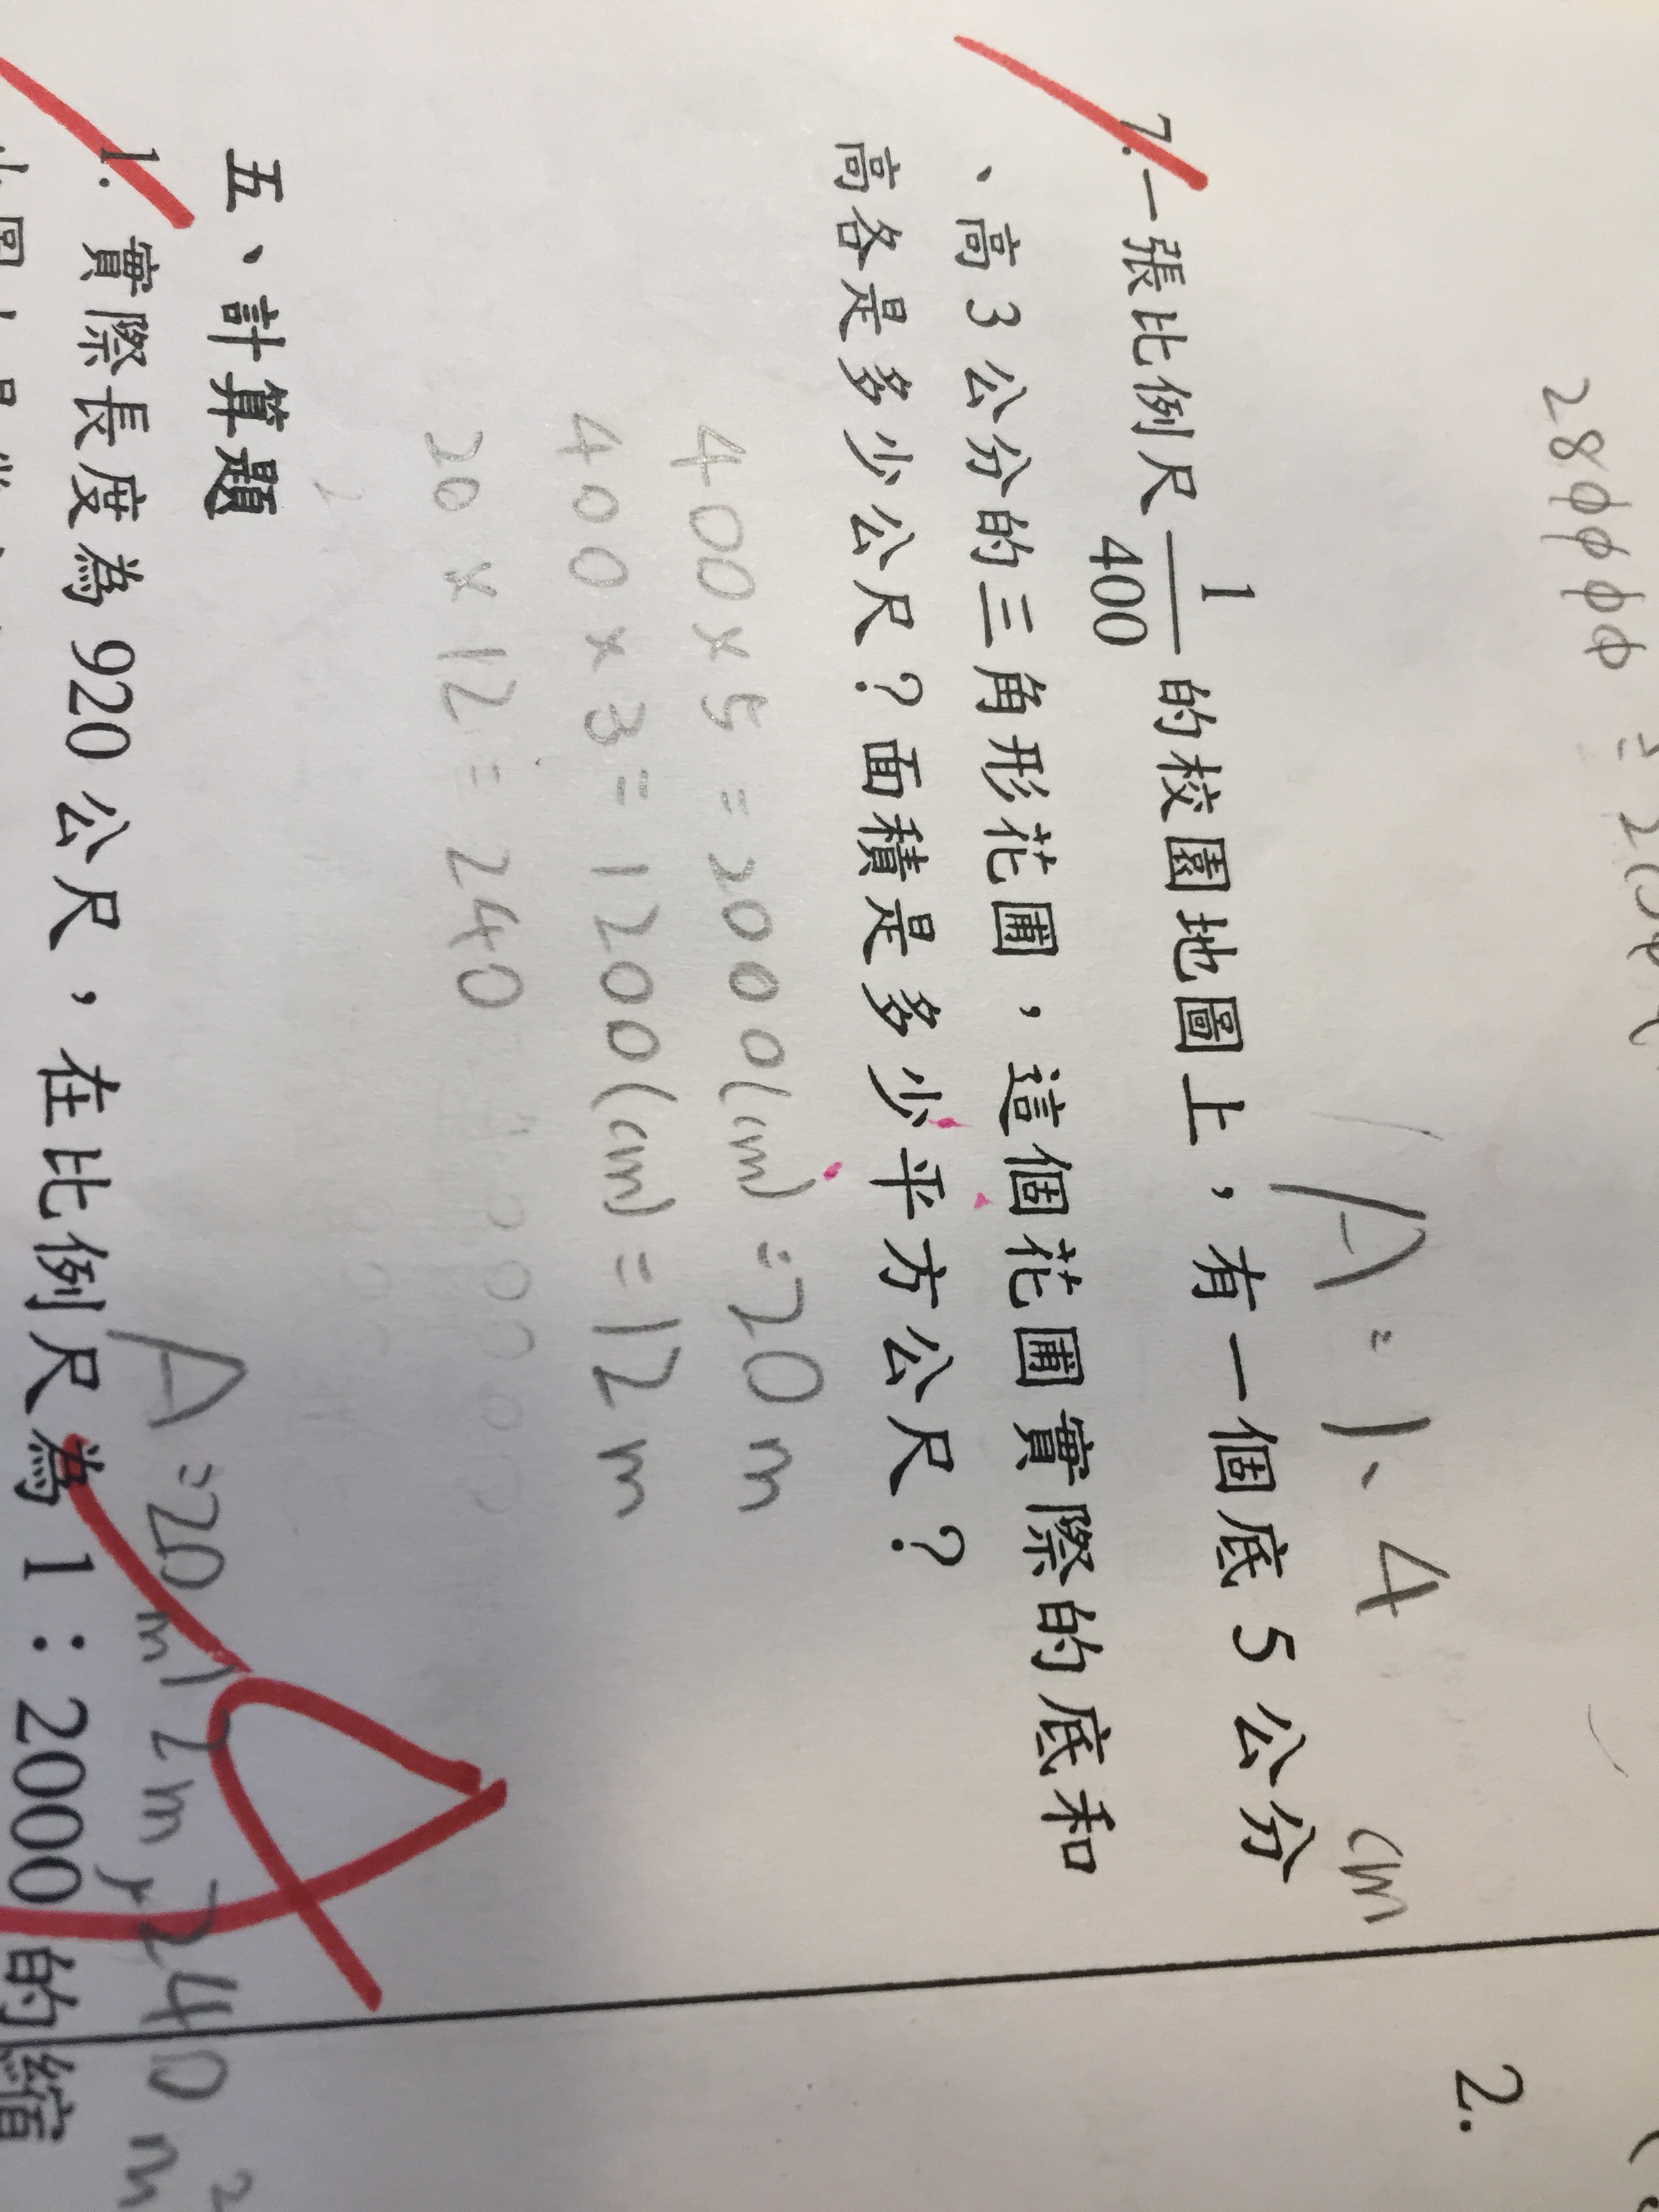 280000
A=1、4 cm
7.一張比例尺 1/400 的校園地圖上，有一個底 5 公分
、高 3 公分的三角形花圃，這個花圃實際的底和
高各是多少公尺？面積是多少平方公尺？
400×5=2000(cm)=20m
400×3=1200(cm)=12m
20×12=240
A=20m 12m,240m²
五、計算題
1. 實際長度為 920 公尺，在比例尺為 1：2000 的縮
2.